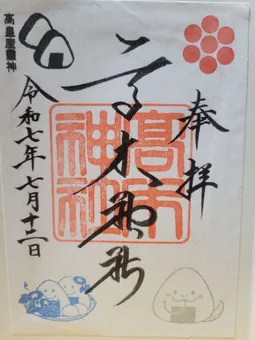 奉拝
高木神社
髙木神社
高皇産靈神
令和七年七月十二日